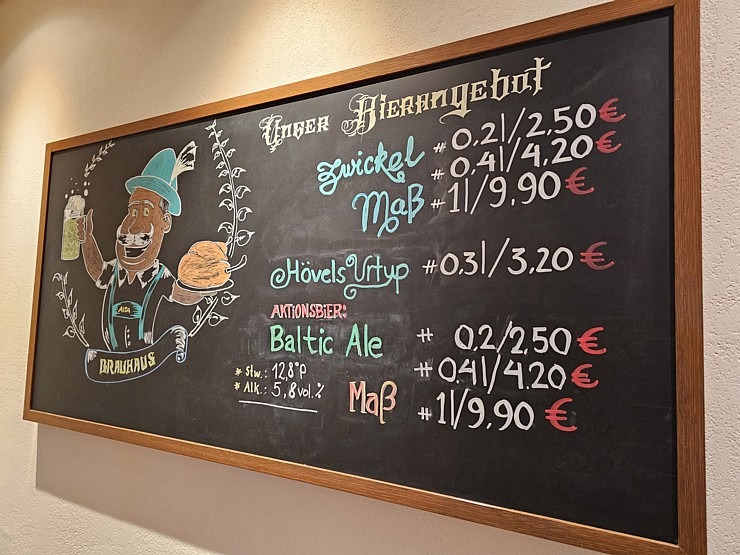 Unser Bierangebot
Zwickel # 0,2l/2,50€
# 0,4l/4,20€
Maß # 1l/9,90€
Hövels Urtyp #0,3l/3,20€
AKTIONSBIER:
Baltic Ale # 0,2/2,50€
* Stw.: 12,8°P # 0,4l/4,20€
* Alk.: 5,8vol.% Maß # 1l/9,90€
AIDA
BRAUHAUS